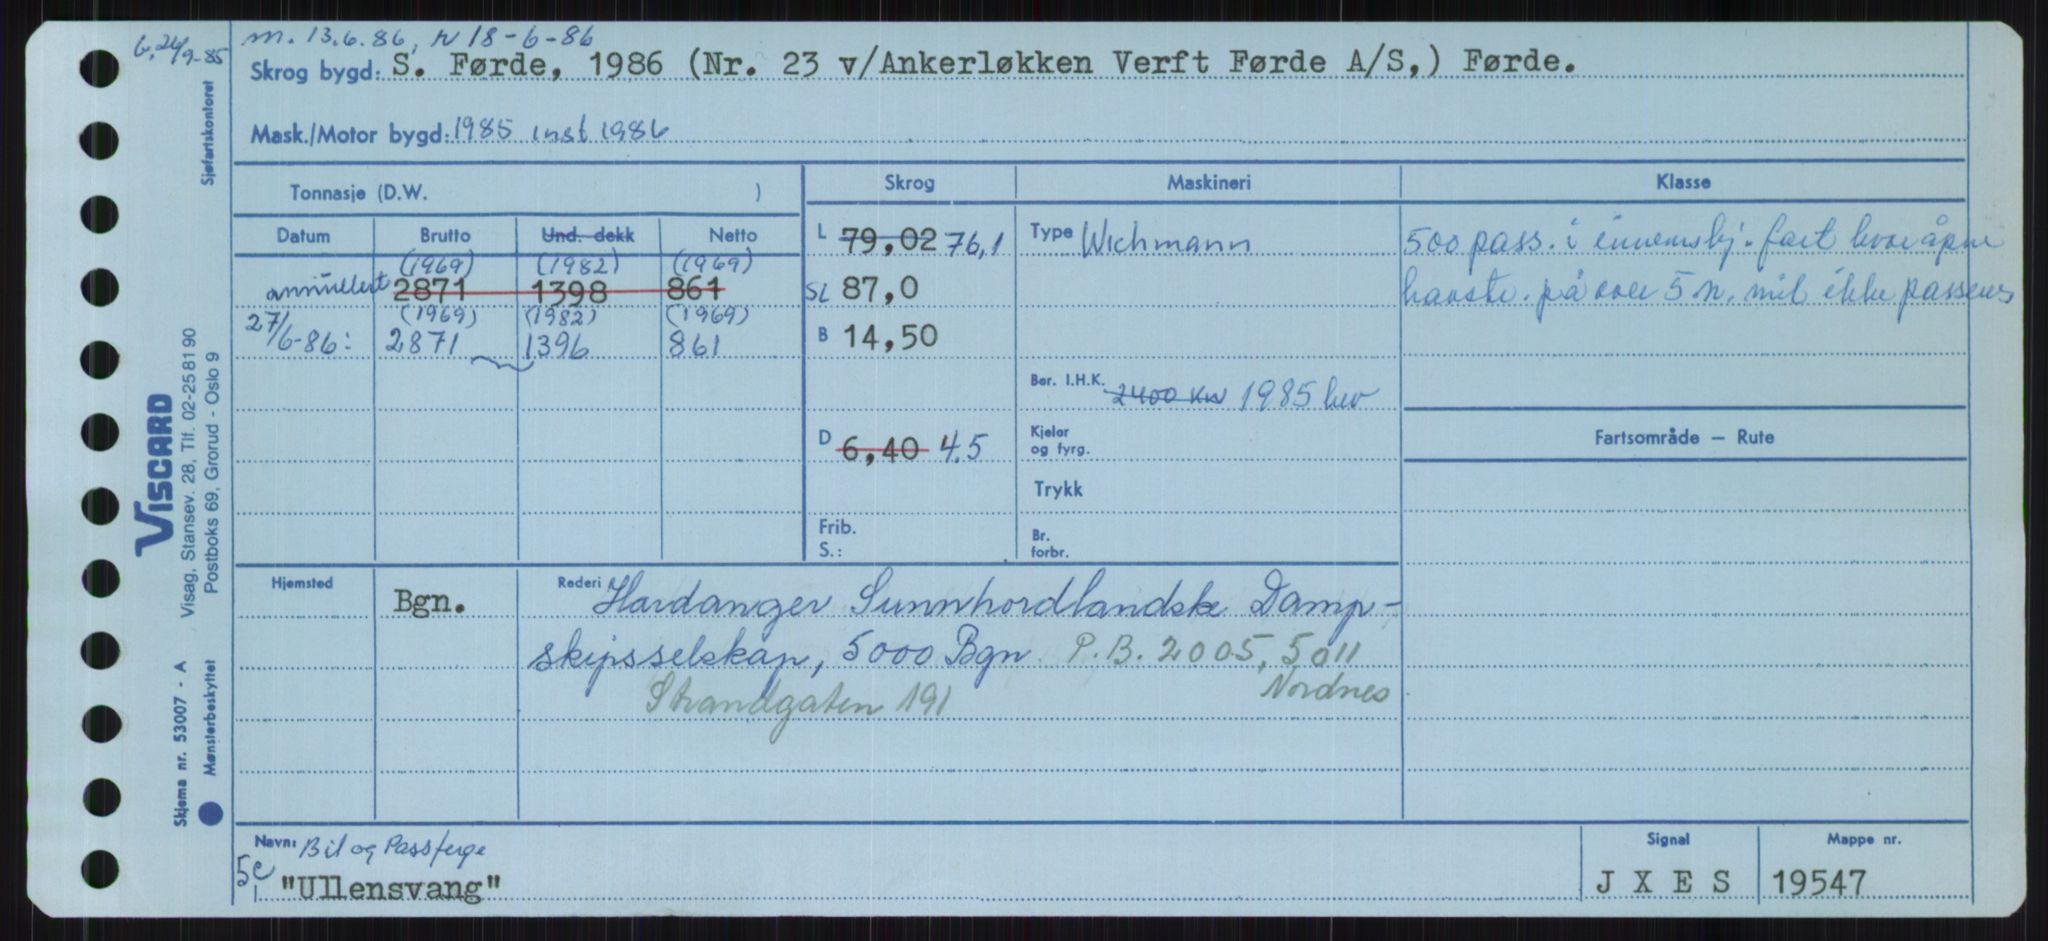 G. 24/9-85
m. 13.6.86, r 18-6-86
Skrog bygd: S. Førde, 1986 (Nr. 23 v/Ankerløkken Verft Førde A/S,) Førde.
Mask./Motor bygd: 1985 inst 1986
Tonnasje (D.W. )
Skrog
Maskineri
Klasse
Datum
Brutto
Und. dekk
Netto
(1969) (1982) (1969)
annullert 2871 1398 861
(1969) (1982) (1969)
27/6-86: 2871 1396 861
L 79,02 76,1
SL 87,0
B 14,50
D 6,40 4,5
Frib.
S.:
Type Wichmann
Ber. I.H.K. 2400 KW 1985 bev
Kjeler
og fyrg.
Trykk
Br.
forbr.
500 pass. i innenskj. fart hvor åpne
havstr. på over 5 n. mil ikke passeres
Fartsområde – Rute
Hjemsted
Bgn.
Rederi Hardanger Sunnhordlandske Damp-
skipsselskap, 5000 Bgn. P.B. 2005, 5011
Strandgaten 191 Nordnes.
Navn: Bil og Passferge
5e
"Ullensvang"
Signal
J X E S
Mappe nr.
19547
Sjøfartskontoret
VISCARD
Visag, Stansev. 28, Tlf. 02-25 81 90
Postboks 69, Grorud - Oslo 9
Skjema nr. 53007 - A
Mønsterbeskyttet